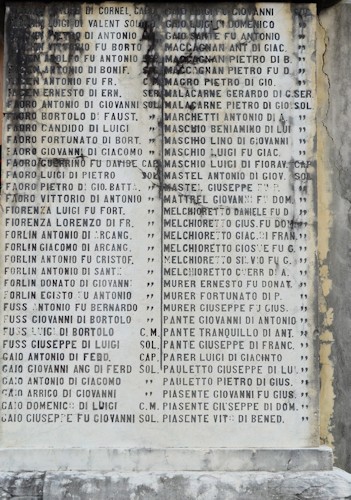 DI CORNEL. CAP.
LUIGI DI VALENT SOL.
EN PIETRO DI ANTONIO
EN VITTORIO FU BORTO
ADOLFO FU ANTONIO SER
ANTONIO DI BONIF.
ANTONIO FU FR.
ERNESTO DI ERN. SER.
FAORO ANTONIO DI GIOVANNI SOL.
FAORO BORTOLO D' FAUST. "
FAORO CANDIDO DI LUIGI "
FAORO FORTUNATO DI BORT. "
FAORO GIOVANNI DI GIACOMO "
FAORO GUERRINO FU DAVIDE CAP.
FAORO LUIGI DI PIETRO SOL.
FAORO PIETRO DI GIO. BATTA. "
FAORO VITTORIO DI ANTONIO "
FIORENZA LUIGI FU FORT. "
FIORENZA LORENZO DI FR. "
FORLIN ANTONIO DI ARCANG. "
FORLIN GIACOMO DI ARCANG. "
FORLIN ANTONIO FU CRISTOF. "
FORLIN ANTONIO DI SANT "
FORLIN DONATO DI GIOVANNI "
FORLIN EGISTO FU ANTONIO "
FUSS ANTONIO FU BERNARDO "
FUSS GIOVANNI DI BORTOLO "
FUSS LUIGI DI BORTOLO C.M.
FUSS GIUSEPPE DI LUIGI SOL.
GAIO ANTONIO DI FERD. CAP.
GAIO GIOVANNI ANG. DI FERD SOL.
GAIO ANTONIO DI GIACOMO "
GAIO ARRIGO DI GIOVANNI "
GAIO DOMENICO DI LUIGI C.M.
GAIO GIUSEPPE FU GIOVANNI SOL.
GIOVANNI
GAIO LUIGI DOMENICO
GAIO SANTE FU ANTONIO
MACCAGNAN ANT. DI GIAC.
MACCAGNAN PIETRO DI B.
MACCAGNAN PIETRO FU D.
MAGRO PIETRO DI GIO.
MALACARNE GERARDO DI G. SER.
MALACARNE PIETRO DI GIO. SOL.
MARCHETTI ANTONIO DI A
MASCHIO BENIAMINO DI LUI
MASCHIO LINO DI GIOVANNI
MASCHIO LUIGI FU GIAC.
MASCHIO LUIGI DI FIORAV. CAP.
MASTEL ANTONIO DI GIOV. SOL.
MASTEL GIUSEPPE
MATTREL GIOVANNI FU DOM.
MELCHIORETTO DANIELE FU D
MELCHIORETTO GIUS. FU DOM.
MELCHIORETTO GIAC. DI FRAN.
MELCHIORETTO GIOSUE FU G.
MELCHIORETTO SILVIO FU G.
MELCHIORETTO DI A.
MURER ERNESTO FU DONAT.
MURER FORTUNATO DI P.
MURER GIUSEPPE FU GIUS.
PANTE GIOVANNI DI ANTONIO
PANTE TRANQUILLO DI ANT.
PANTE GIUSEPPE DI FRANC.
PARER LUIGI DI GIACINTO
PAULETTO GIUSEPPE DI LU
PAULETTO PIETRO DI GIUS.
PIASENTE GIOVANNI FU GIUS.
PIASENTE GIUSEPPE DI DOM.
PIASENTE VITO DI BENED.